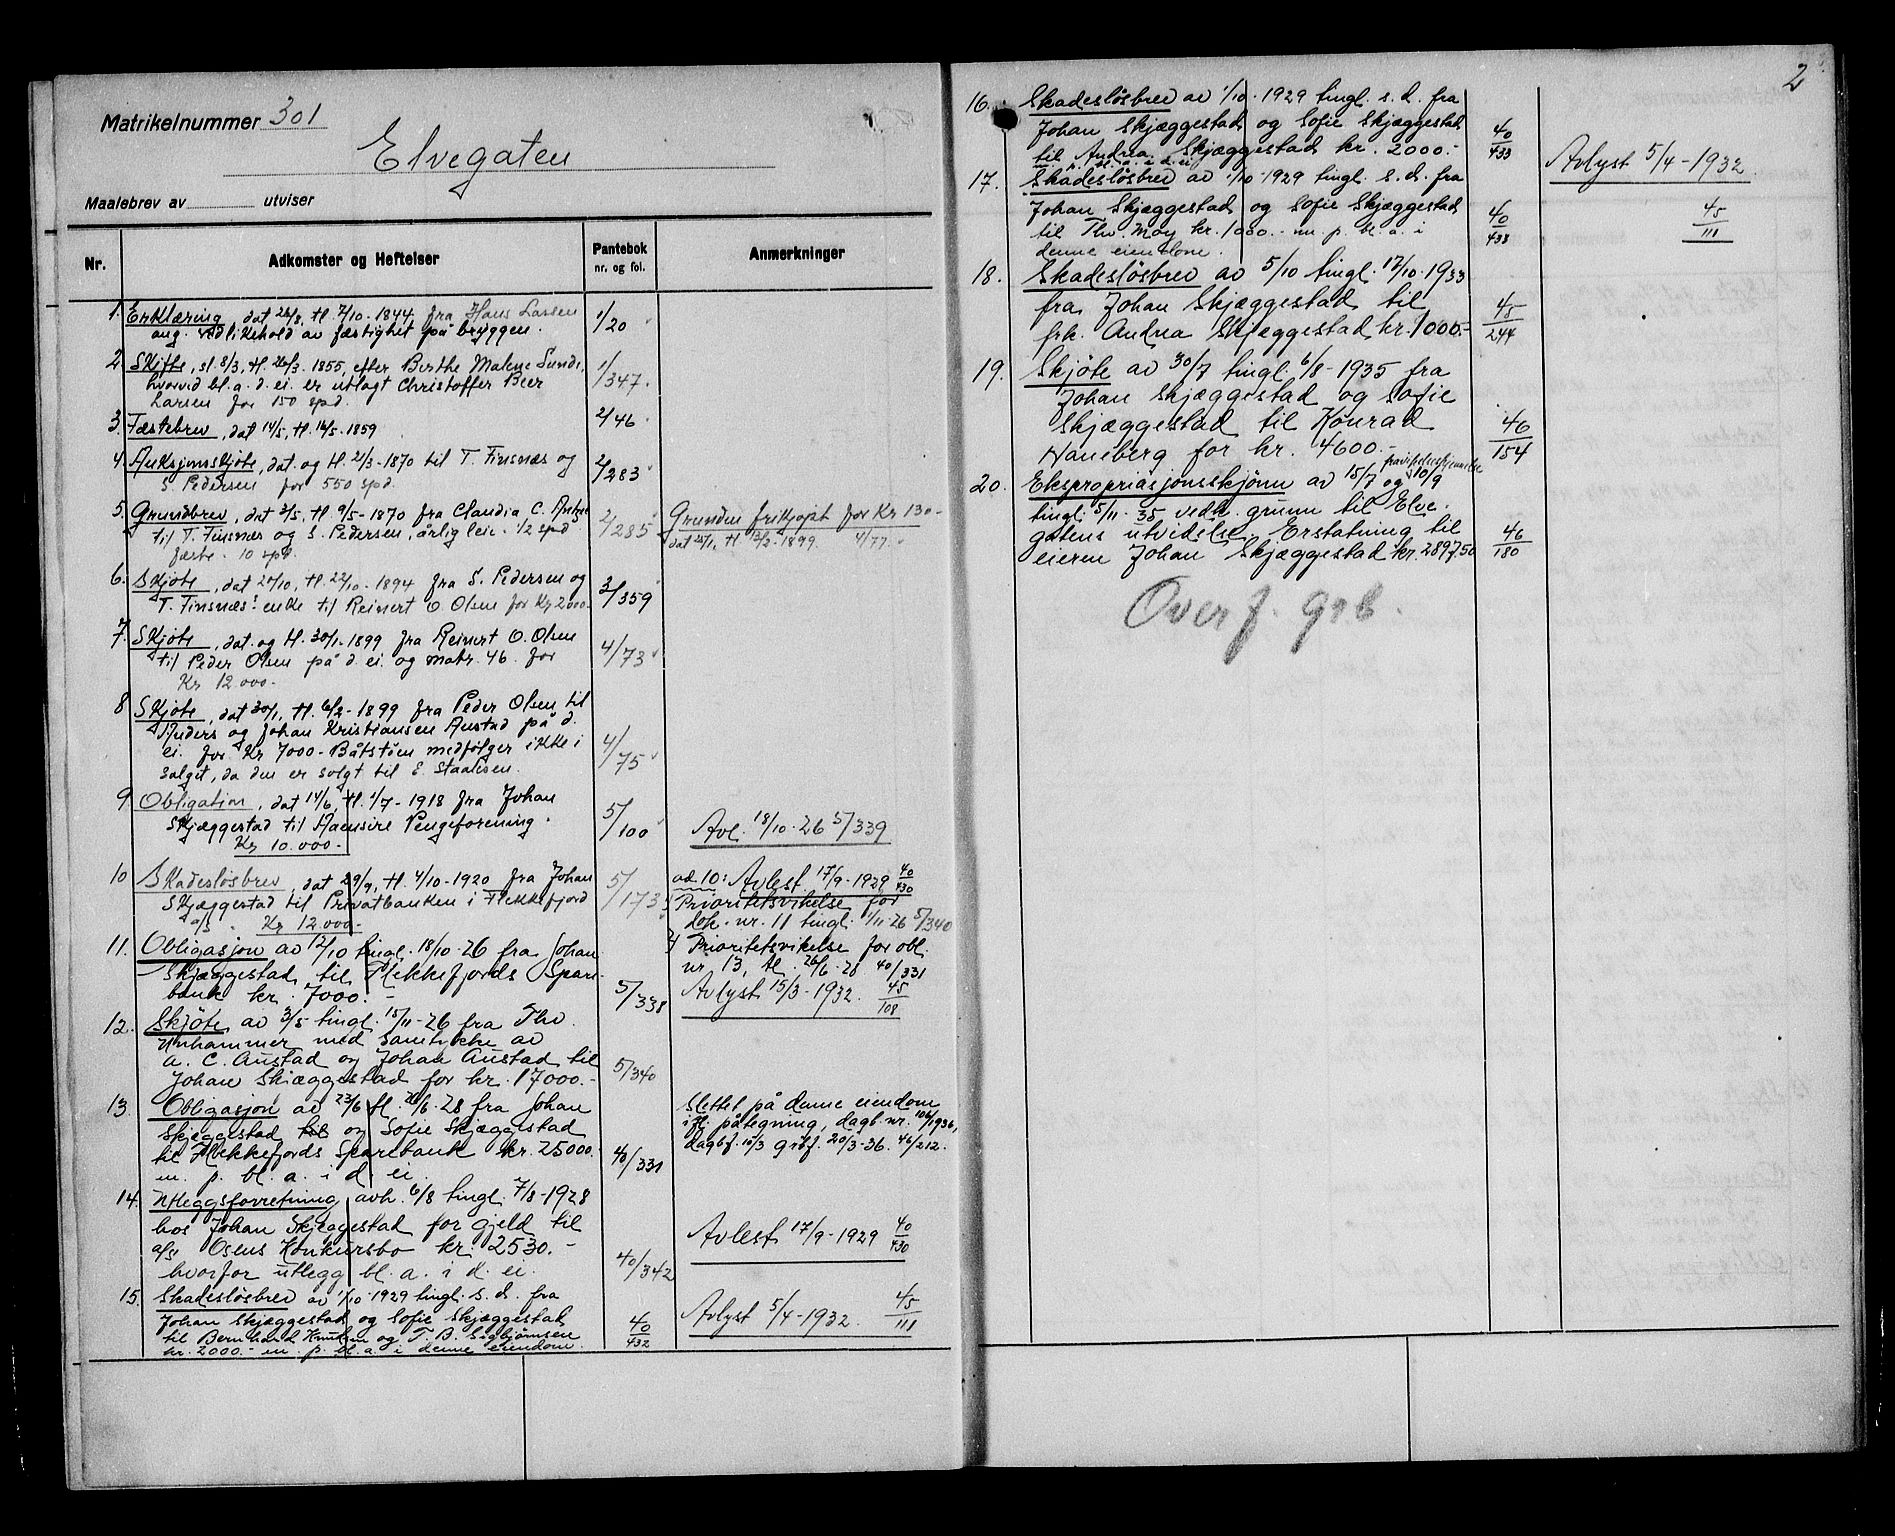 Matrikelnummer 301
Elvegaten
Maalebrev av utviser
Nr. Adkomster og Heftelser Pantebok nr. og fol. Anmerkninger
1. Erklæring, dat 26/8, tl. 7/10-1844 fra Hans Larsen 1/20
ang. vedlikehold av fæstighet på bryggen.
2. Skifte, sl. 8/3, tl. 26/3-1855, efter Berthe Malene Sunde, 1/347.
hvorved bl. a. d. ei. er utlagt Christoffer Beer
Larsen for 150 spd.
3. Fæstebrev, dat 14/5, tl. 16/5-1859 2/46
4. Auksjonsskjøte, dat. og tl. 2/3-1870 til T. Finsnæs og 2/283
S. Pedersen for 550 spd.
5. Grundbrev, dat 3/5, tl. 9/5-1870 fra Claudia C. 2/285 Grunden frikjøpt for Kr 130-
til T. Finsnæs og S. Pedersen, årlig leie 1/2 spd dat 28/1, tl 13/2-1899 4/77.
fæste 10 spd.
6. Skjøte, dat 20/10, tl. 22/10-1894 fra S. Pedersen og 3/359
T. Finsnæs' enke til Reinert O. Olsen for Kr 2000.-
7. Skjøte, dat. og tl. 30/1-1899 fra Reinert O. Olsen 4/73
til Peder Olsen på d. ei. og matr. 46. for
Kr 12.000.-
8 Skjøte, dat 30/1, tl. 6/2-1899 fra Peder Olsen til
Anders og Johan Kristiansen Austad på d.
ei. for Kr 7000.- Båtstøen medfølger ikke i 4/75
salget, da den er solgt til E. Staalesen.
9 Obligation, dat 14/6, tl. 1/7-1918 fra Johan
Skjæggestad til Aaensire Pengeforening. 5/100 Avl. 18/10-26 5/339
Kr 10.000.-
10 Skadesløsbrev, dat 29/9, tl. 4/10-1920 fra Johan 5/173 ad 10: Avlest 17/9-1929 40/430
Skjæggestad til Privatbanken i Flekkefjord Prioritetsvikelse for
a/s. Kr 12.000.- dok. nr. 11 tingl. 1/11-26 5/340
11. Obligasjon av 12/10 tingl. 18/10-26 fra Johan Prioritetsvikelse for obl.
Skjæggestad til Flekkefjords Spare- nr. 13, tl. 26/6-28 40/331
bank kr. 7000.- 5/338 Avlyst 15/3-1932. 45/108
12. Skjøte av 3/5 tingl. 15/11-26 fra Thv.
Unhammer med samtykke av
A. C. Austad og Johan Austad til 5/340
Johan Skjæggestad for kr. 17000.-
13. Obligasjon av 23/6 tl. 26/6-28 fra Johan Slettet på denne eiendom
Skjæggestad til og Sofie Skjæggestad ifl. påtegning, dagb. nr. 106/1936,
til Flekkefjords Sparebank kr. 25000. 40/331 dagbf. 10/3 grbf. 20/3-36. 46/212.
m. p. bl. a. i d. ei.
14. Utleggsforretning avh. 6/8 tingl. 7/8-1928
hos Johan Skjæggestad for gjeld til Avlest 17/9-1929 40/430
a/s Osens Konkursbo kr. 2530.- 40/342
hvorfor utlegg bl. a. i d. ei.
15. Skadesløsbrev av 1/10 1929 tingl. s. d. fra
Johan Skjæggestad og Sofie Skjæggestad 40/432 Avlyst 5/4-1932. 45/111
til Bernhard Knudsen og T. B. Sigbjørnsen
kr. 2000.- m. p. bl. a. i denne eiendom.
2
16. Skadesløsbrev av 1/10-1929 tingl. s. d. fra
Johan Skjæggestad og Sofie Skjæggestad 40/433
til Andrea Skjæggestad kr. 2000.-
m. p. bl. a. i d. ei. Avlyst 5/4-1932.
17. Skadesløsbrev av 1/10-1929 tingl. s. d. fra
Johan Skjæggestad og Sofie Skjæggestad 40/433 45/111
til Thv. Moy kr. 1000.- m. p. bl. a. i
denne eiendom.
18. Skadesløsbrev av 5/10 tingl. 17/10-1933
fra Johan Skjæggestad til 45/244
frk. Andrea Skjæggestad kr. 1000.-
19. Skjøte av 30/7 tingl. 6/8-1935 fra
Johan Skjæggestad og Sofie
Skjæggestad til Konrad 46/154
Haneberg for kr. 4600.-
20. Ekspropriasjonsskjønn av 15/7 og 10/9
tingl. 5/11-35 vedk. grunn til Elve-
gatens utvidelse. Erstatning til 46/180
eieren Johan Skjæggestad kr. 2897.50
Overf. grb.